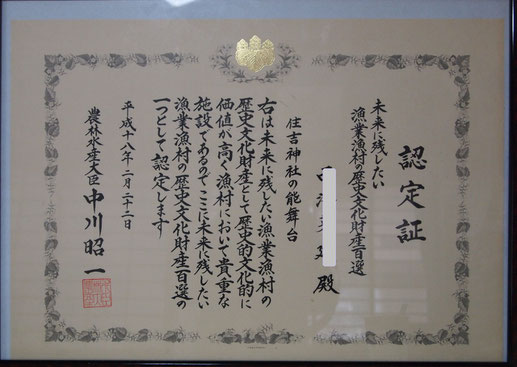 認定証
未来に残したい
漁業漁村の歴史文化財産百選
住吉神社の能舞台
殿
右は未来に残したい漁業漁村の
歴史文化財産として歴史的文化的に
価値が高く漁村において貴重な
施設であるのでここに未来に残したい
漁業漁村の歴史文化財産百選の
一つとして認定します
平成十八年二月二十二日
農林水産大臣 中川昭一